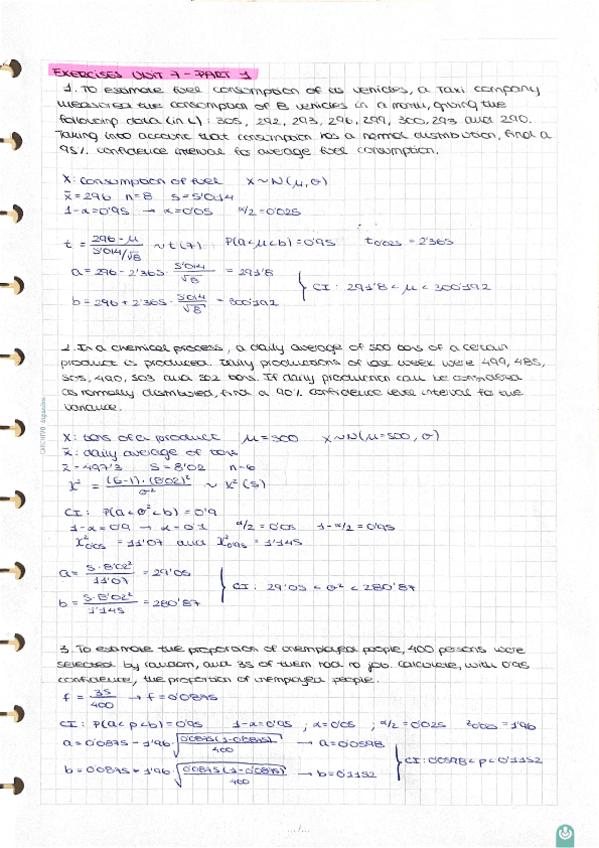 EXERCISES UNIT 7 - PART 1
1. To estimate fuel consumption of its vehicles, a Taxi company
measured the consumption of 8 vehicles in a month, giving the
following data (in L): 305, 292, 293, 296, 299, 300, 293 and 290.
Taking into account that consumption has a normal distribution, find a
95% confidence interval for average fuel consumption.
X: consumption of fuel X~N(μ, σ)
x̄=296 n=8 S=5'014
1-α=0'95 → α=0'05 α/2=0'025
t = (296-μ)/(5'014/√8) ~ t(7) P(a<μ<b)=0'95 t0'025 = 2'365
a = 296 - 2'365 · 5'014/√8 = 291'8
CI: 291'8 < μ < 300'192
b = 296 + 2'365 · 5'014/√8 = 300'192
2. In a chemical process, a daily average of 500 tons of a certain
product is produced. Daily productions of last week were 499, 485,
505, 490, 503 and 502 tons. If daily production can be considered
as normally distributed, find a 90% confidence level interval for the
variance.
X: tons of a product μ=500 X~N(μ=500, σ)
x̄: daily average of tons
x̄=497'3 S=8'02 n=6
χ² = (6-1)·(8'02)²/σ² ~ χ²(5)
CI: P(a<σ²<b)=0'9
1-α=0'9 → α=0'1 α/2=0'05 1-α/2=0'95
χ²0'05 = 11'07 and χ²0'95 = 1'145
a = 5·8'02²/11'07 = 29'05
CI: 29'05 < σ² < 280'87
b = 5·8'02²/1'145 = 280'87
3. To estimate the proportion of unemployed people, 400 persons were
selected by random, and 35 of them had no job. Calculate, with 0'95
confidence, the proportion of unemployed people.
f = 35/400 → f=0'0875
CI: P(a<p<b)=0'95 1-α=0'95 ; α=0'05 ; α/2=0'025 z0'025=1'96
a=0'0875 - 1'96·√(0'0875(1-0'0875)/400) → a=0'0598
CI: 0'0598<p<0'1152
b=0'0875 + 1'96·√(0'0875(1-0'0875)/400) → b=0'1152
.../...